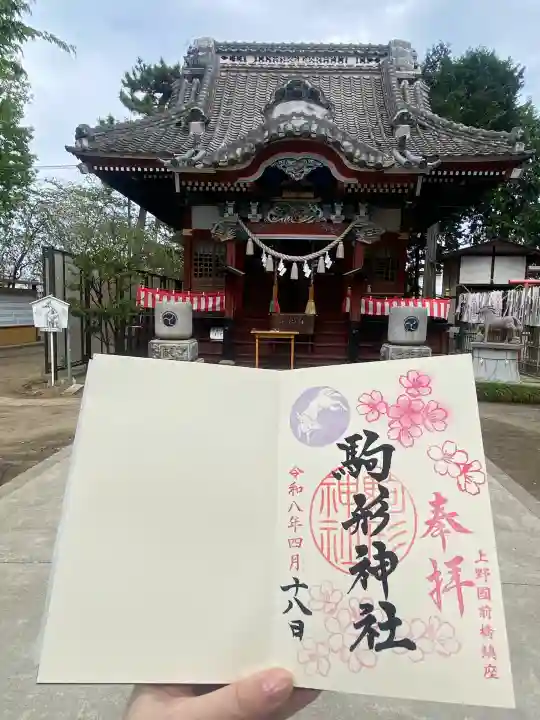 奉拝
上野國前橋鎮座
駒形神社
駒形
神社
令和八年四月
十八日